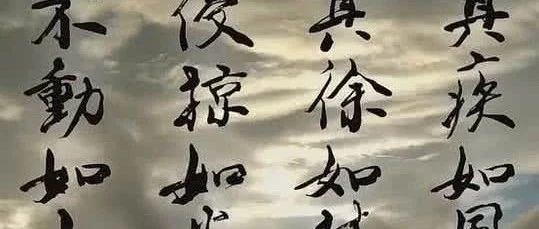 其疾如
其徐如
侵掠如
不動如